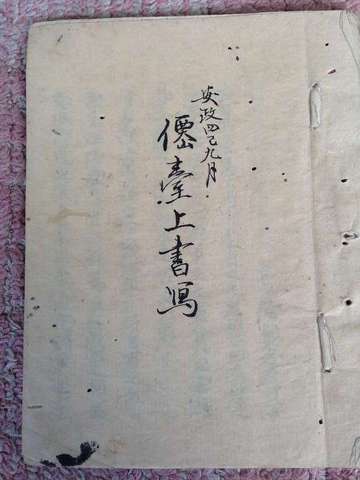 安政四巳九月
僊臺上書冩